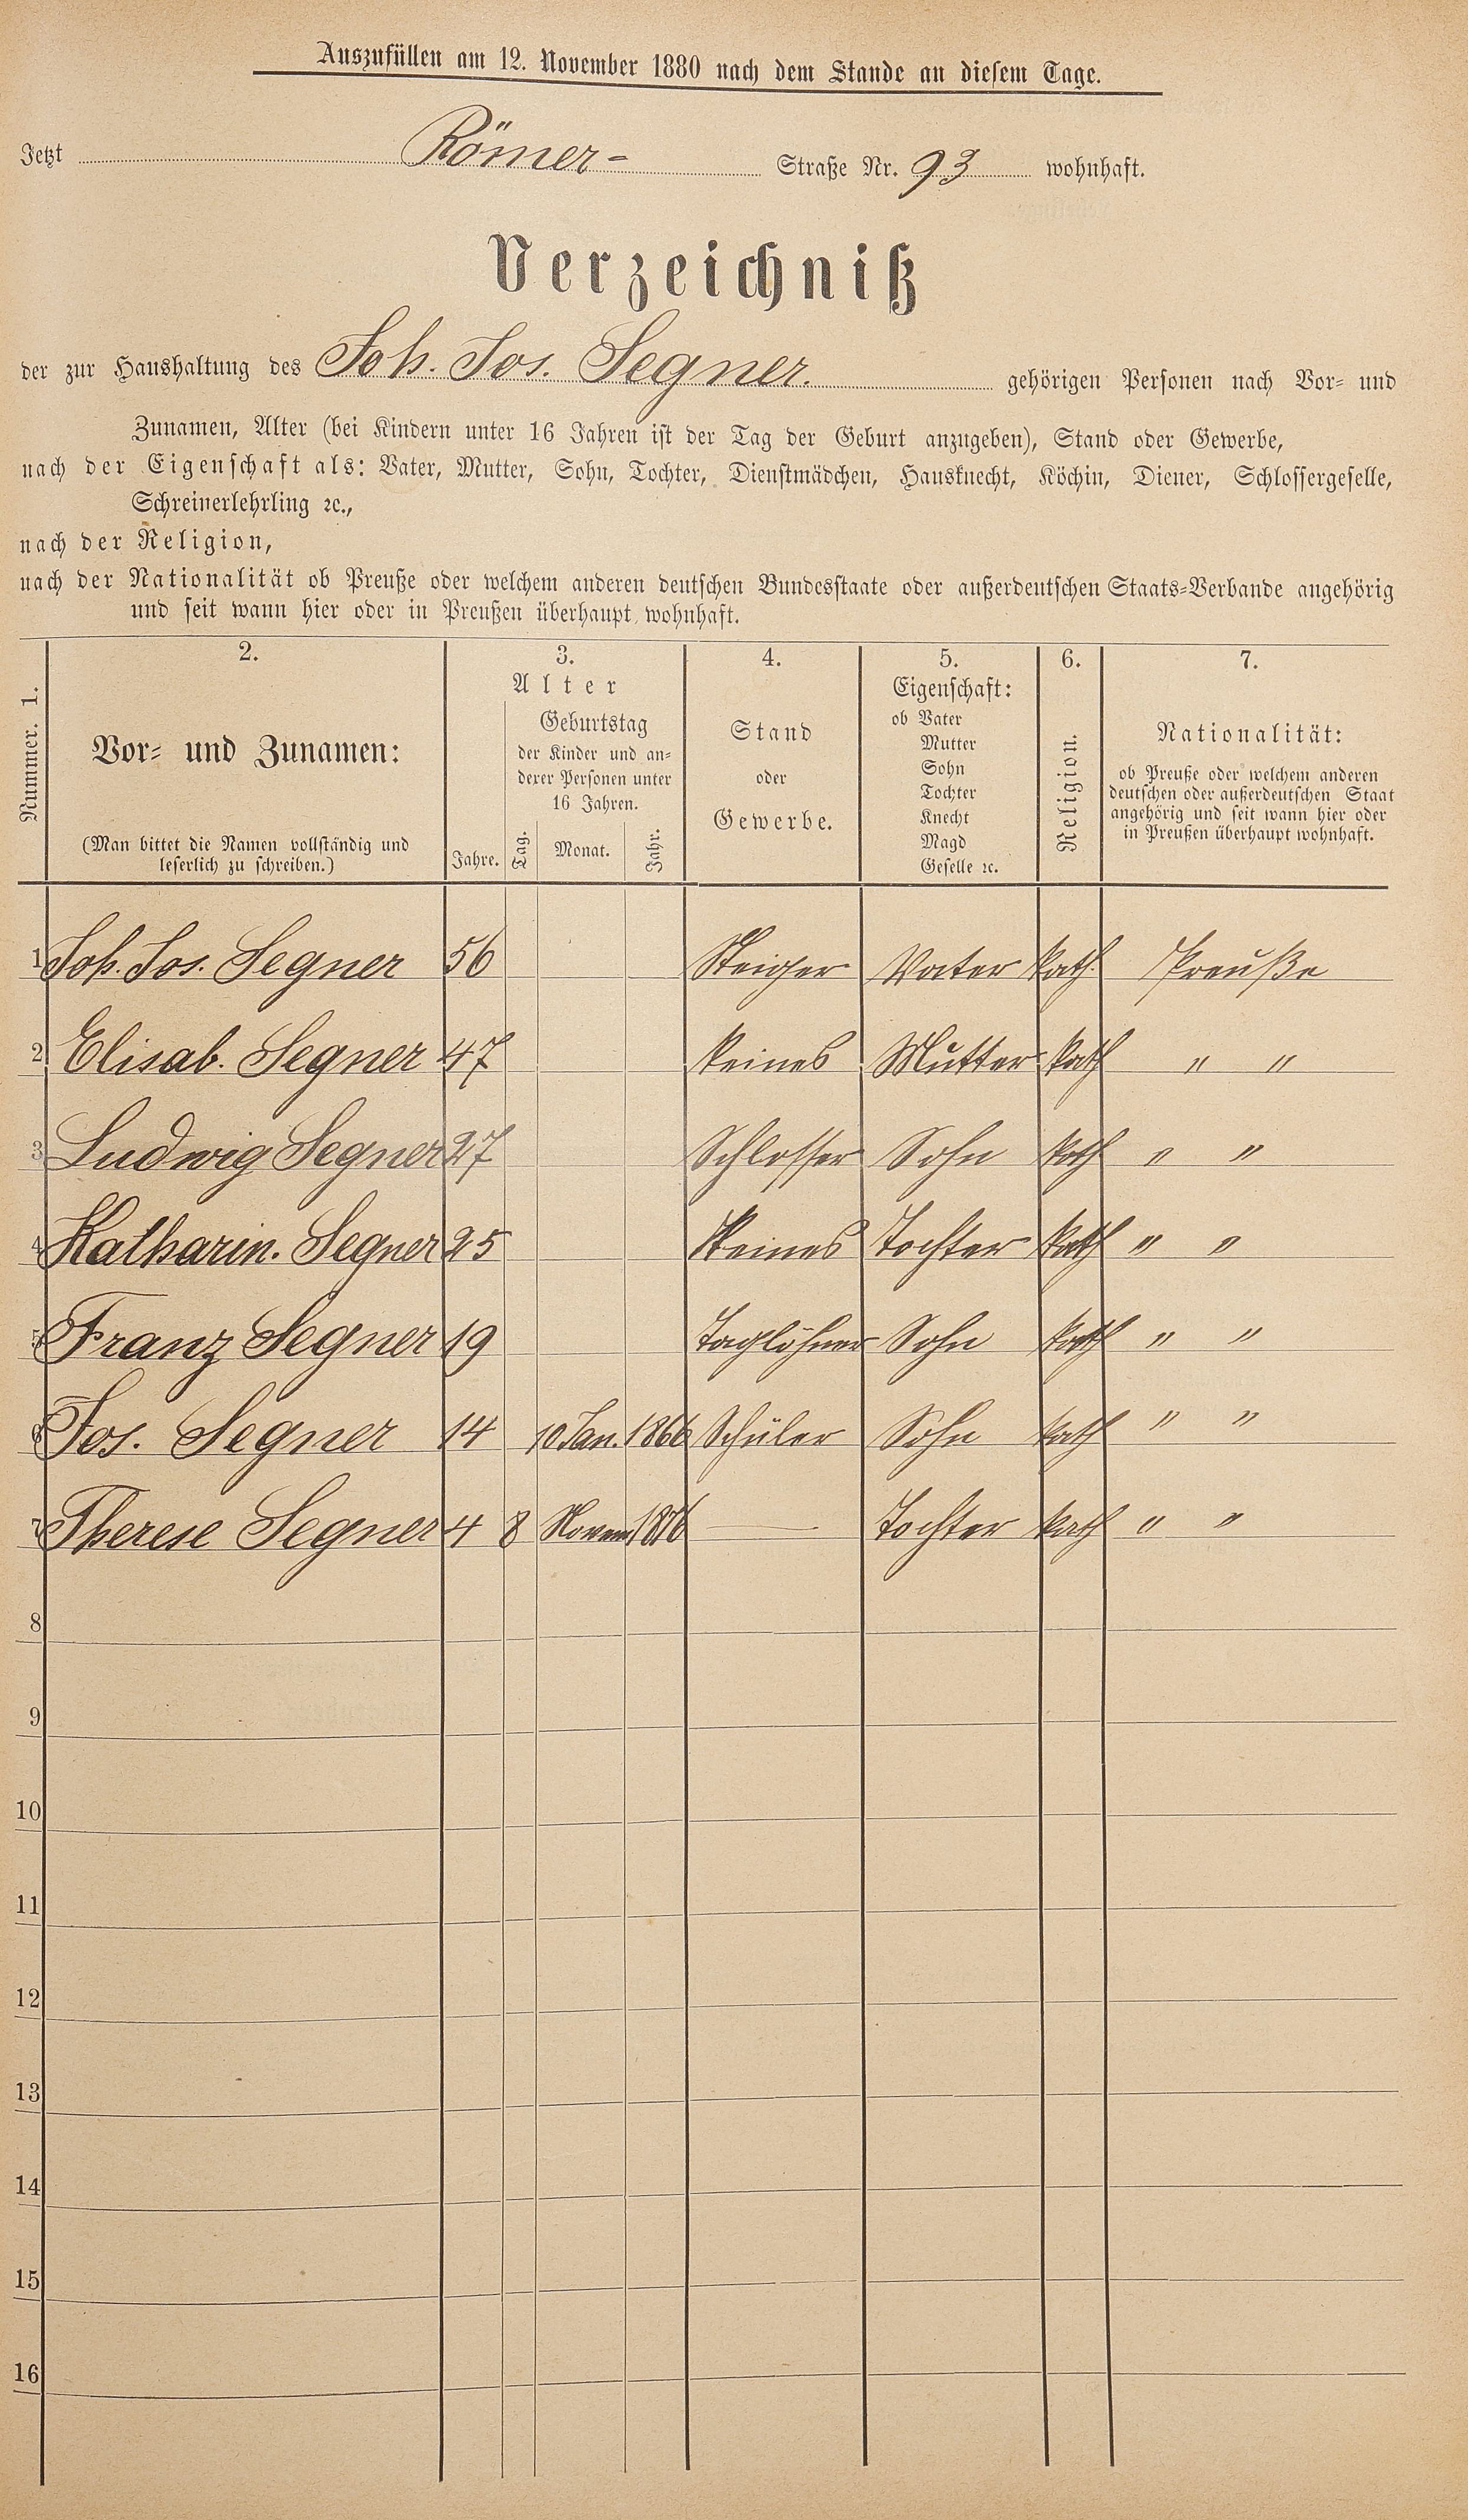 Auszufüllen am 12. November 1880 nach dem Stande an diesem Tage.
Jetzt Römer- Straße Nr. 93 wohnhaft.
Verzeichniß
der zur Haushaltung des Joh. Jos. Segner. gehörigen Personen nach Vor- und
Zunamen, Alter (bei Kindern unter 16 Jahren ist der Tag der Geburt anzugeben), Stand oder Gewerbe,
nach der Eigenschaft als: Vater, Mutter, Sohn, Tochter, Dienstmädchen, Hausknecht, Köchin, Diener, Schlossergeselle,
Schreinerlehrling ꝛc.,
nach der Religion,
nach der Nationalität ob Preuße oder welchem anderen deutschen Bundesstaate oder außerdeutschen Staats-Verbande angehörig
und seit wann hier oder in Preußen überhaupt wohnhaft.
Nummer. 1.
2.
Vor- und Zunamen:
(Man bittet die Namen vollständig und
leserlich zu schreiben.)
3.
Alter
Jahre.
Geburtstag
der Kinder und an-
derer Personen unter
16 Jahren.
Tag. Monat. Jahr.
4.
Stand
oder
Gewerbe.
5.
Eigenschaft:
ob Vater
Mutter
Sohn
Tochter
Knecht
Magd
Geselle ꝛc.
6.
Religion.
7.
Nationalität:
ob Preuße oder welchem anderen
deutschen oder außerdeutschen Staat
angehörig und seit wann hier oder
in Preußen überhaupt wohnhaft.
1 Joh. Jos. Segner 56 Steiger Vater kath. Preuße
2 Elisab. Segner 47 keines Mutter kath " "
3 Ludwig Segner 27 Schlosser Sohn kath " "
4 Katharin. Segner 25 keines Tochter kath " "
5 Franz Segner 19 Taglöhner Sohn kath " "
6 Jos. Segner 14 10 Jan. 1866 Schüler Sohn kath " "
7 Therese Segner 4 8 Novem 1876 — Tochter kath " "
8
9
10
11
12
13
14
15
16